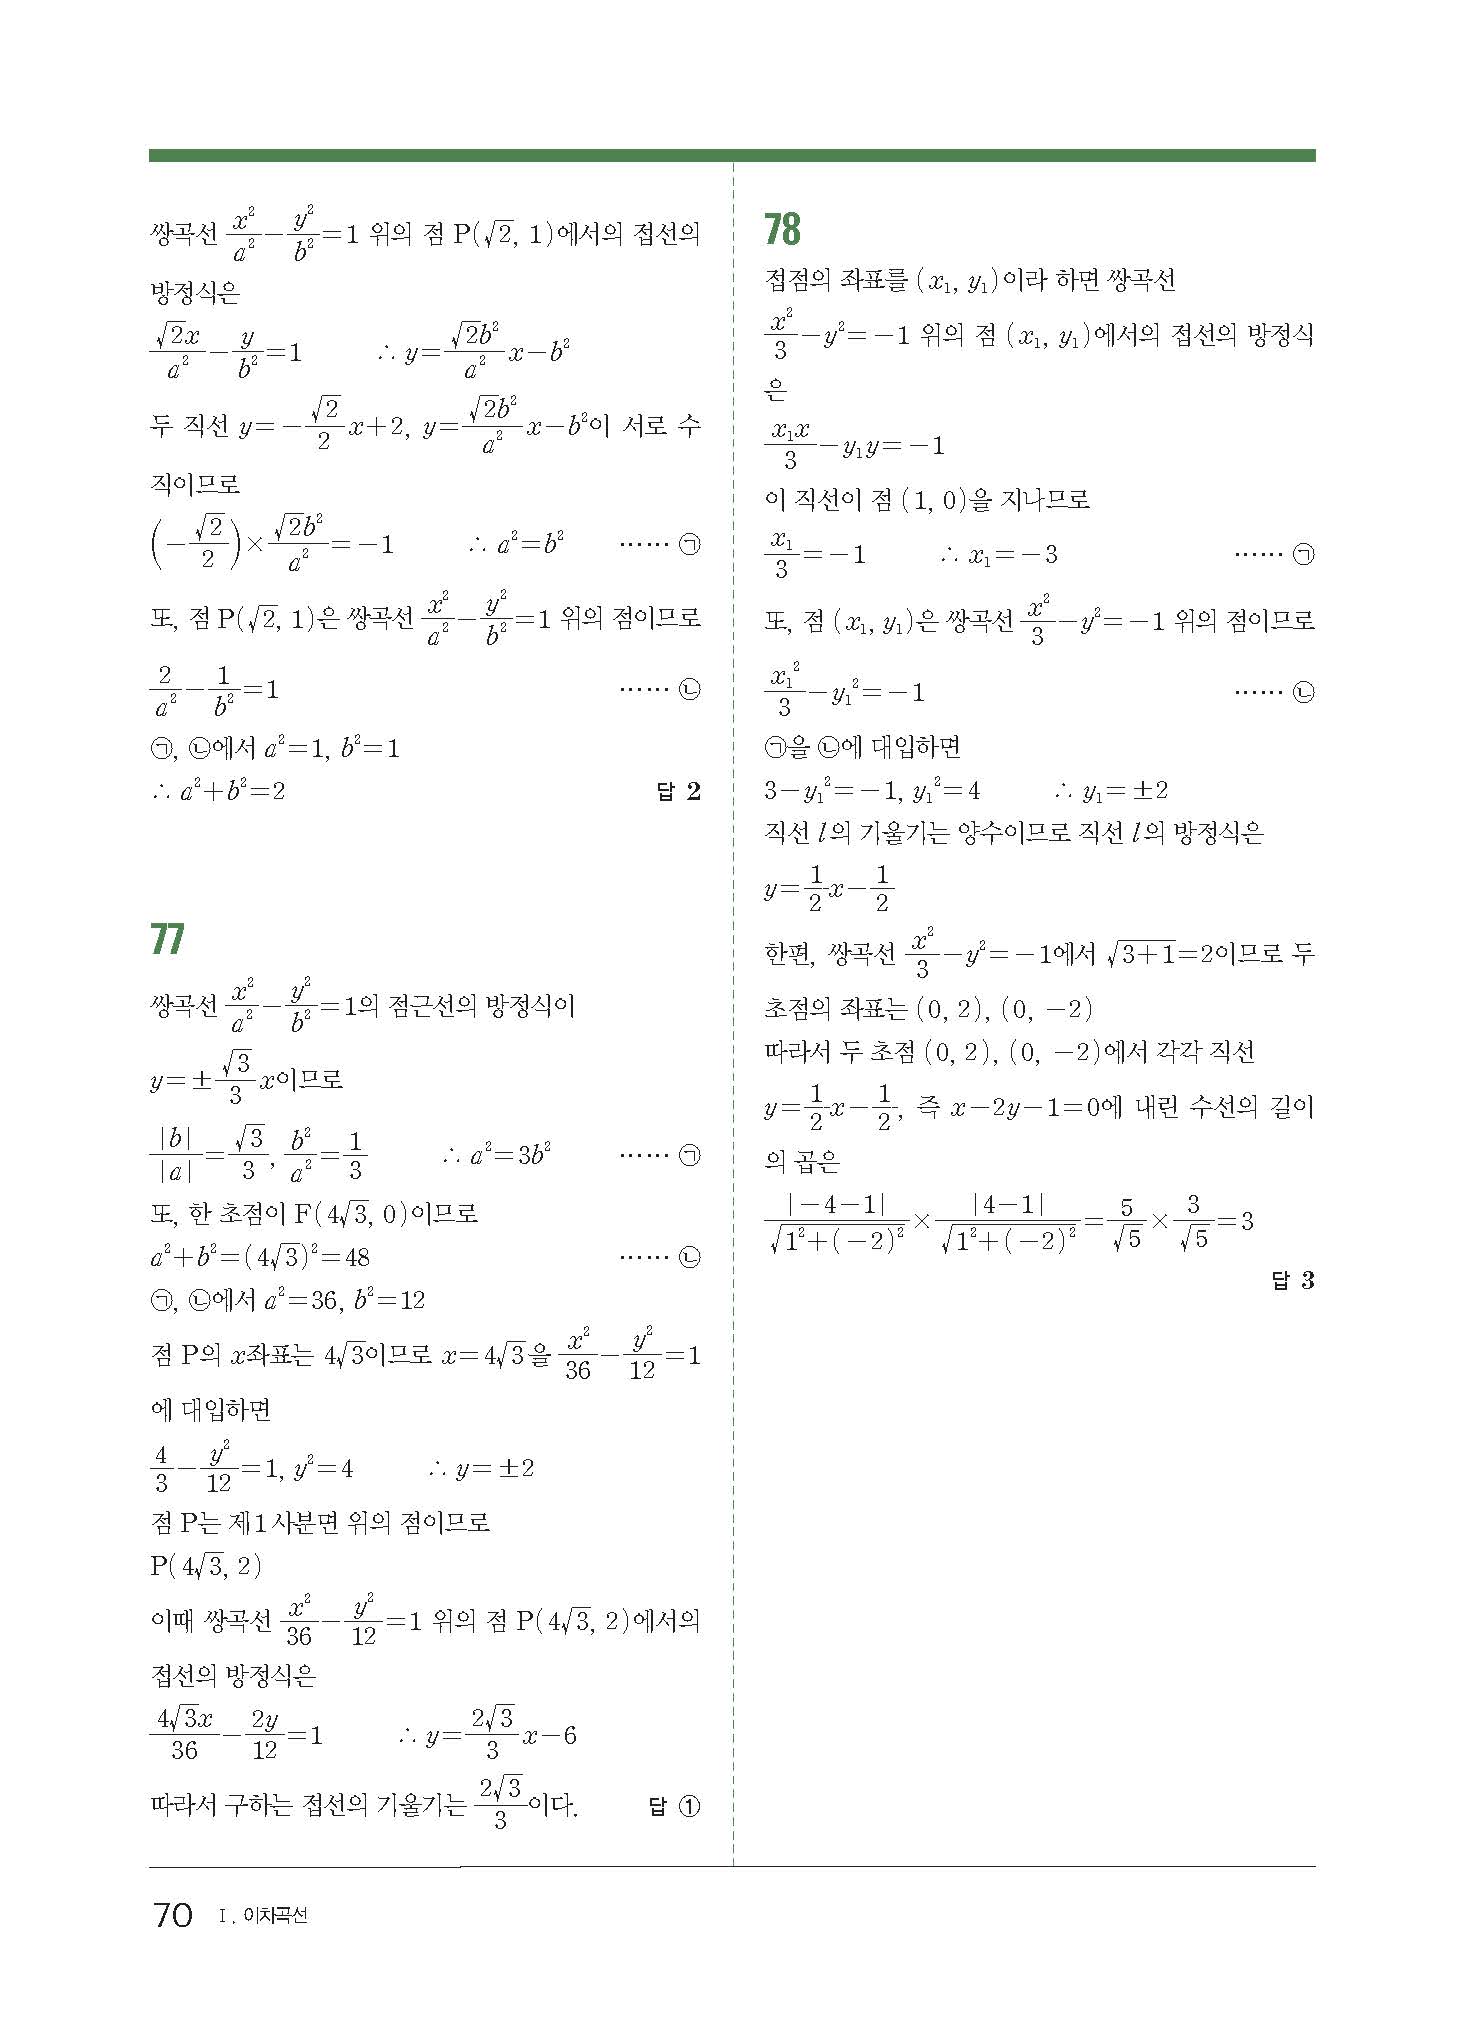 쌍곡선 x²/a²-y²/b²=1 위의 점 P(√2, 1)에서의 접선의
방정식은
√2x/a²-y/b²=1 ∴ y=√2b²/a² x-b²
두 직선 y=-√2/2 x+2, y=√2b²/a² x-b²이 서로 수
직이므로
(-√2/2)×√2b²/a²=-1 ∴ a²=b² …… ㉠
또, 점 P(√2, 1)은 쌍곡선 x²/a²-y²/b²=1 위의 점이므로
2/a²-1/b²=1 …… ㉡
㉠, ㉡에서 a²=1, b²=1
∴ a²+b²=2 답 2
77
쌍곡선 x²/a²-y²/b²=1의 점근선의 방정식이
y=±√3/3 x이므로
|b|/|a|=√3/3, b²/a²=1/3 ∴ a²=3b² …… ㉠
또, 한 초점이 F(4√3, 0)이므로
a²+b²=(4√3)²=48 …… ㉡
㉠, ㉡에서 a²=36, b²=12
점 P의 x좌표는 4√3이므로 x=4√3을 x²/36-y²/12=1
에 대입하면
4/3-y²/12=1, y²=4 ∴ y=±2
점 P는 제1사분면 위의 점이므로
P(4√3, 2)
이때 쌍곡선 x²/36-y²/12=1 위의 점 P(4√3, 2)에서의
접선의 방정식은
4√3x/36-2y/12=1 ∴ y=2√3/3 x-6
따라서 구하는 접선의 기울기는 2√3/3이다. 답 ①
78
접점의 좌표를 (x₁, y₁)이라 하면 쌍곡선
x²/3-y²=-1 위의 점 (x₁, y₁)에서의 접선의 방정식
은
x₁x/3-y₁y=-1
이 직선이 점 (1, 0)을 지나므로
x₁/3=-1 ∴ x₁=-3 …… ㉠
또, 점 (x₁, y₁)은 쌍곡선 x²/3-y²=-1 위의 점이므로
x₁²/3-y₁²=-1 …… ㉡
㉠을 ㉡에 대입하면
3-y₁²=-1, y₁²=4 ∴ y₁=±2
직선 l의 기울기는 양수이므로 직선 l의 방정식은
y=1/2 x-1/2
한편, 쌍곡선 x²/3-y²=-1에서 √3+1=2이므로 두
초점의 좌표는 (0, 2), (0, -2)
따라서 두 초점 (0, 2), (0, -2)에서 각각 직선
y=1/2 x-1/2, 즉 x-2y-1=0에 내린 수선의 길이
의 곱은
|-4-1|/√1²+(-2)² × |4-1|/√1²+(-2)² = 5/√5 × 3/√5 = 3
답 3
70 Ⅰ. 이차곡선